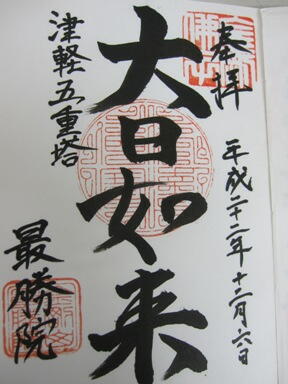 奉拝
平成二十二年十二月六日
大日如来
津軽五重塔
最勝院